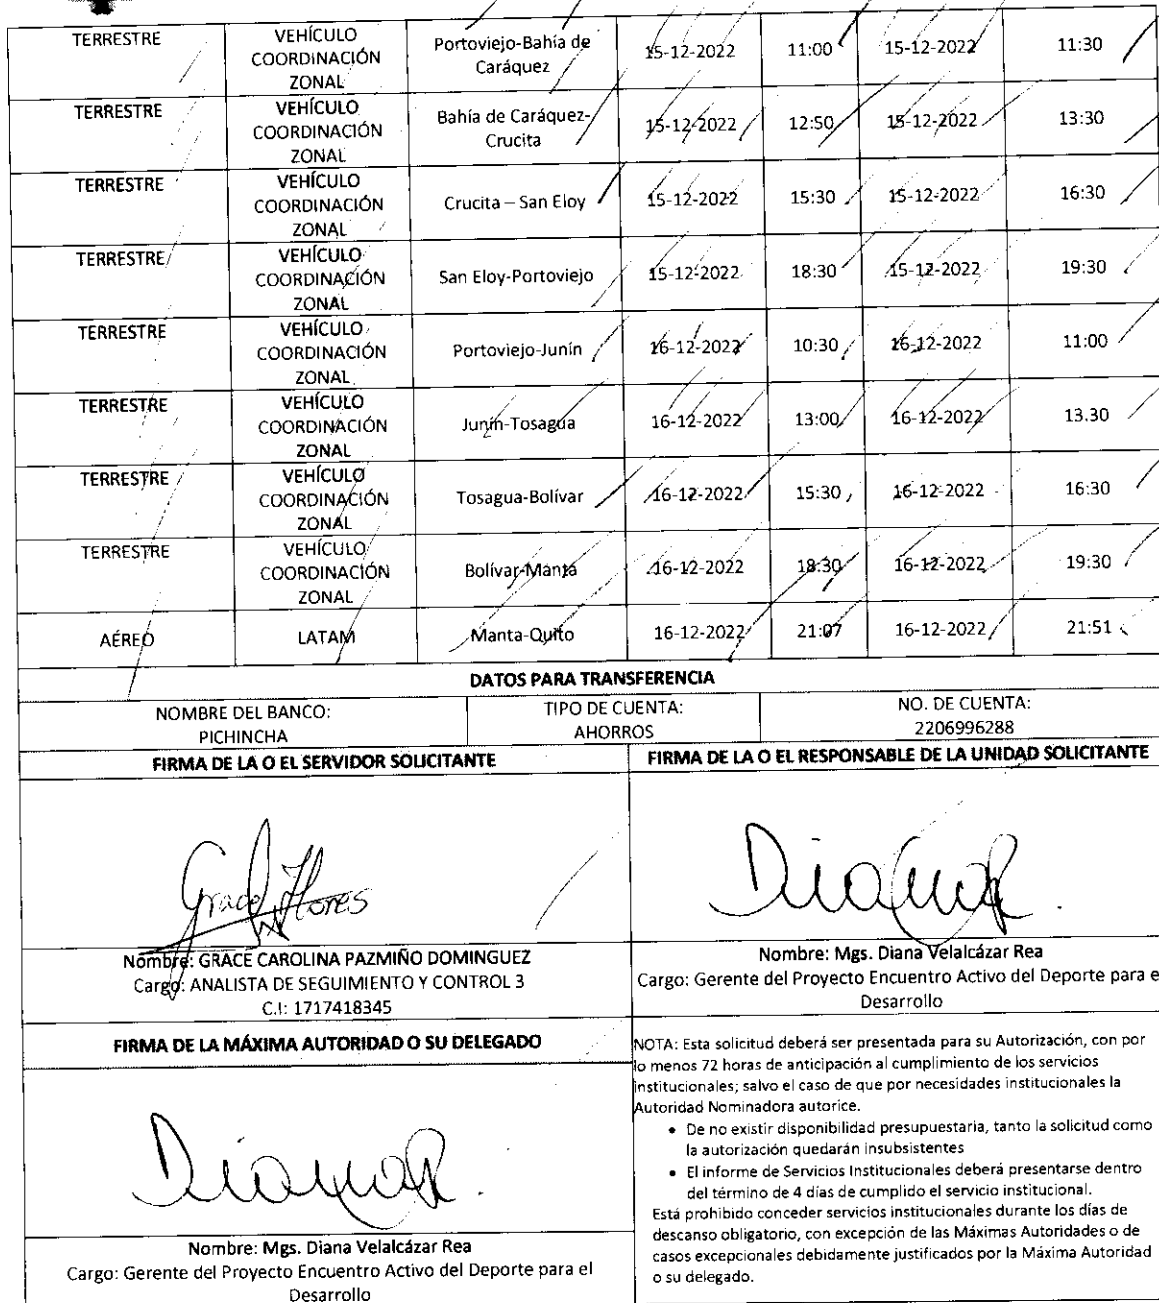 TERRESTRE VEHÍCULO COORDINACIÓN ZONAL Portoviejo-Bahía de Caráquez 15-12-2022 11:00 15-12-2022 11:30
TERRESTRE VEHÍCULO COORDINACIÓN ZONAL Bahía de Caráquez-Crucita 15-12-2022 12:50 15-12-2022 13:30
TERRESTRE VEHÍCULO COORDINACIÓN ZONAL Crucita – San Eloy 15-12-2022 15:30 15-12-2022 16:30
TERRESTRE VEHÍCULO COORDINACIÓN ZONAL San Eloy-Portoviejo 15-12-2022 18:30 15-12-2022 19:30
TERRESTRE VEHÍCULO COORDINACIÓN ZONAL Portoviejo-Junín 16-12-2022 10:30 16-12-2022 11:00
TERRESTRE VEHÍCULO COORDINACIÓN ZONAL Junín-Tosagua 16-12-2022 13:00 16-12-2022 13.30
TERRESTRE VEHÍCULO COORDINACIÓN ZONAL Tosagua-Bolívar 16-12-2022 15:30 16-12-2022 16:30
TERRESTRE VEHÍCULO COORDINACIÓN ZONAL Bolívar-Manta 16-12-2022 18:30 16-12-2022 19:30
AÉREO LATAM Manta-Quito 16-12-2022 21:07 16-12-2022 21:51
DATOS PARA TRANSFERENCIA
NOMBRE DEL BANCO: TIPO DE CUENTA: NO. DE CUENTA:
PICHINCHA AHORROS 2206996288
FIRMA DE LA O EL SERVIDOR SOLICITANTE FIRMA DE LA O EL RESPONSABLE DE LA UNIDAD SOLICITANTE
Grace Flores
Nombre: GRACE CAROLINA PAZMIÑO DOMINGUEZ
Cargo: ANALISTA DE SEGUIMIENTO Y CONTROL 3
C.I: 1717418345
Nombre: Mgs. Diana Velalcázar Rea
Cargo: Gerente del Proyecto Encuentro Activo del Deporte para e
Desarrollo
FIRMA DE LA MÁXIMA AUTORIDAD O SU DELEGADO
Nombre: Mgs. Diana Velalcázar Rea
Cargo: Gerente del Proyecto Encuentro Activo del Deporte para el
Desarrollo
NOTA: Esta solicitud deberá ser presentada para su Autorización, con por
lo menos 72 horas de anticipación al cumplimiento de los servicios
institucionales; salvo el caso de que por necesidades institucionales la
Autoridad Nominadora autorice.
• De no existir disponibilidad presupuestaria, tanto la solicitud como
la autorización quedarán insubsistentes
• El informe de Servicios Institucionales deberá presentarse dentro
del término de 4 días de cumplido el servicio institucional.
Está prohibido conceder servicios institucionales durante los días de
descanso obligatorio, con excepción de las Máximas Autoridades o de
casos excepcionales debidamente justificados por la Máxima Autoridad
o su delegado.